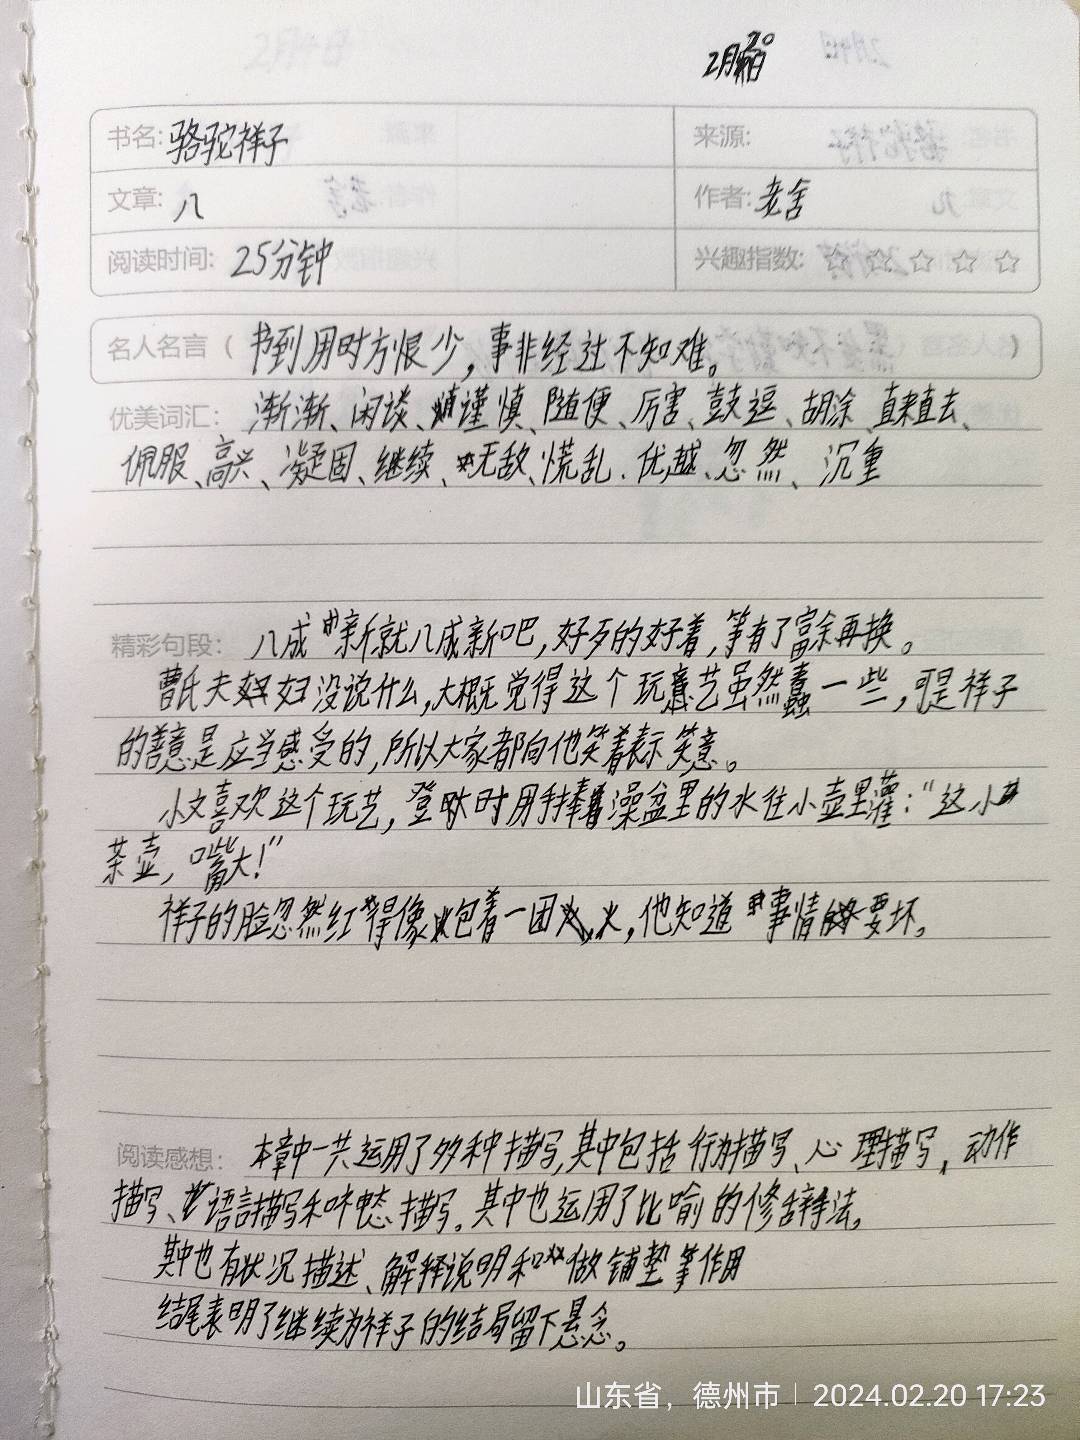 2月20日
书名: 骆驼祥子 来源:
文章: 八 作者: 老舍
阅读时间: 25分钟 兴趣指数: ☆ ☆ ☆ ☆ ☆
名人名言（ 书到用时方恨少，事非经过不知难。 ）
优美词汇: 渐渐、闲谈、谨慎、随便、厉害、鼓逗、胡涂、直来直去、
佩服、高兴、凝固、继续、无敌、慌乱、优越、忽然、沉重
精彩句段: 八成新就八成新吧，好歹的好着，等有了富余再换。
曹氏夫妇没说什么，大概觉得这个玩意艺虽然蠢一些，可是祥子
的善意是应当感受的，所以大家都向他笑着表示笑意。
小文喜欢这个玩艺，登时用手捧着澡盆里的水往小壶里灌："这小
茶壶，嘴大！"
祥子的脸忽然红得像包着一团火，他知道事情要坏。
阅读感想: 本章中一共运用了多种描写，其中包括行为描写、心理描写，动作
描写、语言描写和神态描写。其中也运用了比喻的修辞手法。
其中也有状况描述、解释说明和做铺垫等作用
结尾表明了继续为祥子的结局留下悬念。
山东省，德州市 | 2024.02.20 17:23